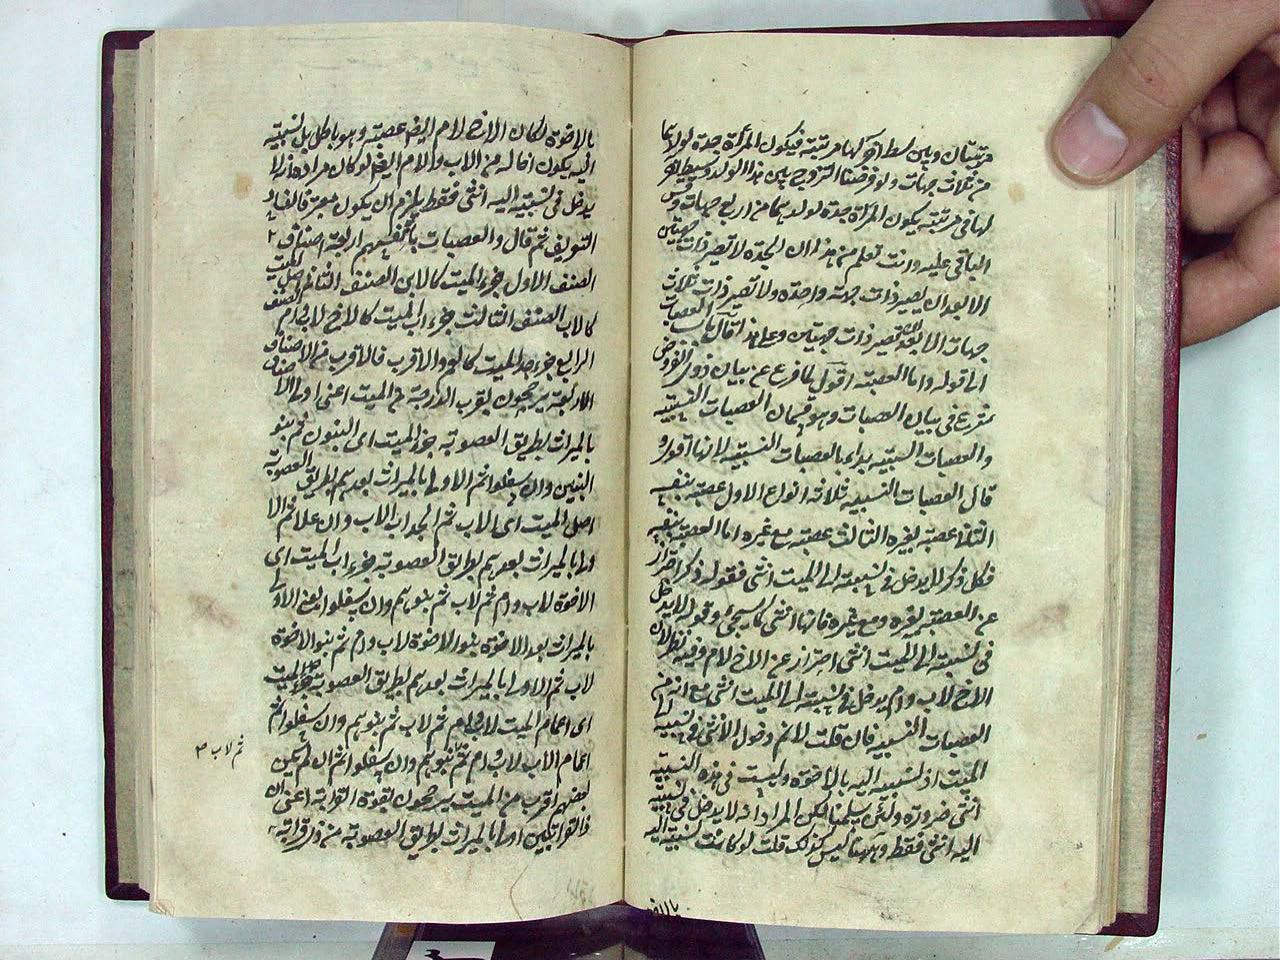 مرتبتان وبين سط اخو كلها مرتبته فيكون المرأة جدة لولدهما
من ثلاث جهات ولو فرضنا التزوج بين هذا الولد وسبط اخر
لها في مرتبته يكون المرأة جدة لولدهما من اربع جهات وقس
الباقي عليه وانت تعلم من هذا ان الجدة لا تصير ذات جهتين
الا بعد ان يصير ذات جهة واحدة ولا تصير ذات ثلاث
جهات الا بعد ان تصير ذات جهتين وعلى هذا قال باب العصبات
الى قوله واما العصبة اقول لما فرغ عن بيان ذوى الفروض
شرع في بيان العصبات وهو قسمان العصبات النسبية
والعصبات السببية بداء بالعصبات النسبية لانها اقوى و
قال العصبات النسبية ثلاثة انواع الاول عصبة بنفسه
الثانى عصبة بغيره الثالث عصبة مع غيره اما العصبة بنفسه
فكل ذكر لا يدخل في نسبته الى الميت انثى فقوله ذكر احتراز
عن العصبة بغيره ومع غيره فانها انثى كما سيجئ وقوله لا يدخل
في نسبته الى الميت انثى احتراز عن الاخ لام وفيه نظر لان
الاخ لاب وام يدخل في نسبته الى الميت انثى مع انه من
العصبات النسبية فان قلت لانم دخول الانثى في نسبته الى
الميت اذ نسبته اليه بالاخوة وليست في هذه النسبة
انثى ضرورة ولئن سلمنا لكن المراد انه لا يدخل في نسبته
اليه انثى فقط وههنا ليس كذلك قلت لو كانت نسبته اليه
بالاخوة
بالاخوة لكان الاخ لام ايضا عصبة وهو باطل بل نسبته
اليه يكون اخا له من الاب والام ايضا لو كان مراده ان لا
يدخل في نسبته اليه انثى فقط يلزم ان يكون
التعريف ثم قال والعصبات بانفسهم اربعة اصناف
الصنف الاول جزء الميت كالابن الصنف الثانى اصل الميت
كالاب الصنف الثالث جزء اب الميت كالاخ لاب وام الصنف
الرابع جزء جد الميت كالعم والاقرب فالاقرب من الاصناف
الاربعة يرجحون بقرب الدرجة عن الميت اعنى اولى الاصناف
بالميراث بطريق العصوبة جزء الميت اى البنون ثم بنو
البنين وان سفلوا ثم الاولى بالميراث بعدهم بطريق العصوبة
اصل الميت اى الاب ثم الجد اب الاب وان علا ثم الا
ولى بالميراث بعدهم بطريق العصوبة جزء اب الميت اى
الاخوة لاب وام ثم لاب ثم بنوهم وان سفلوا يعنى الاولى
بالميراث بعد الاخوة بنو الاخوة لاب وام ثم بنو الاخوة
لاب ثم الاولى بالميراث بعدهم بطريق العصوبة جزء جد الميت
اى اعمام الميت لاب وام ثم لاب ثم بنوهم وان سفلوا ثم
اعمام الاب لاب وام ثم بنوهم وان سفلوا ثم ان لم يكن
بعضهم اقرب من الميت يرجحون بقوة القرابة اعنى ان
ذا القرابتين اولى بالميراث بطريق العصوبة من ذى قرابة
ثم لاب صح